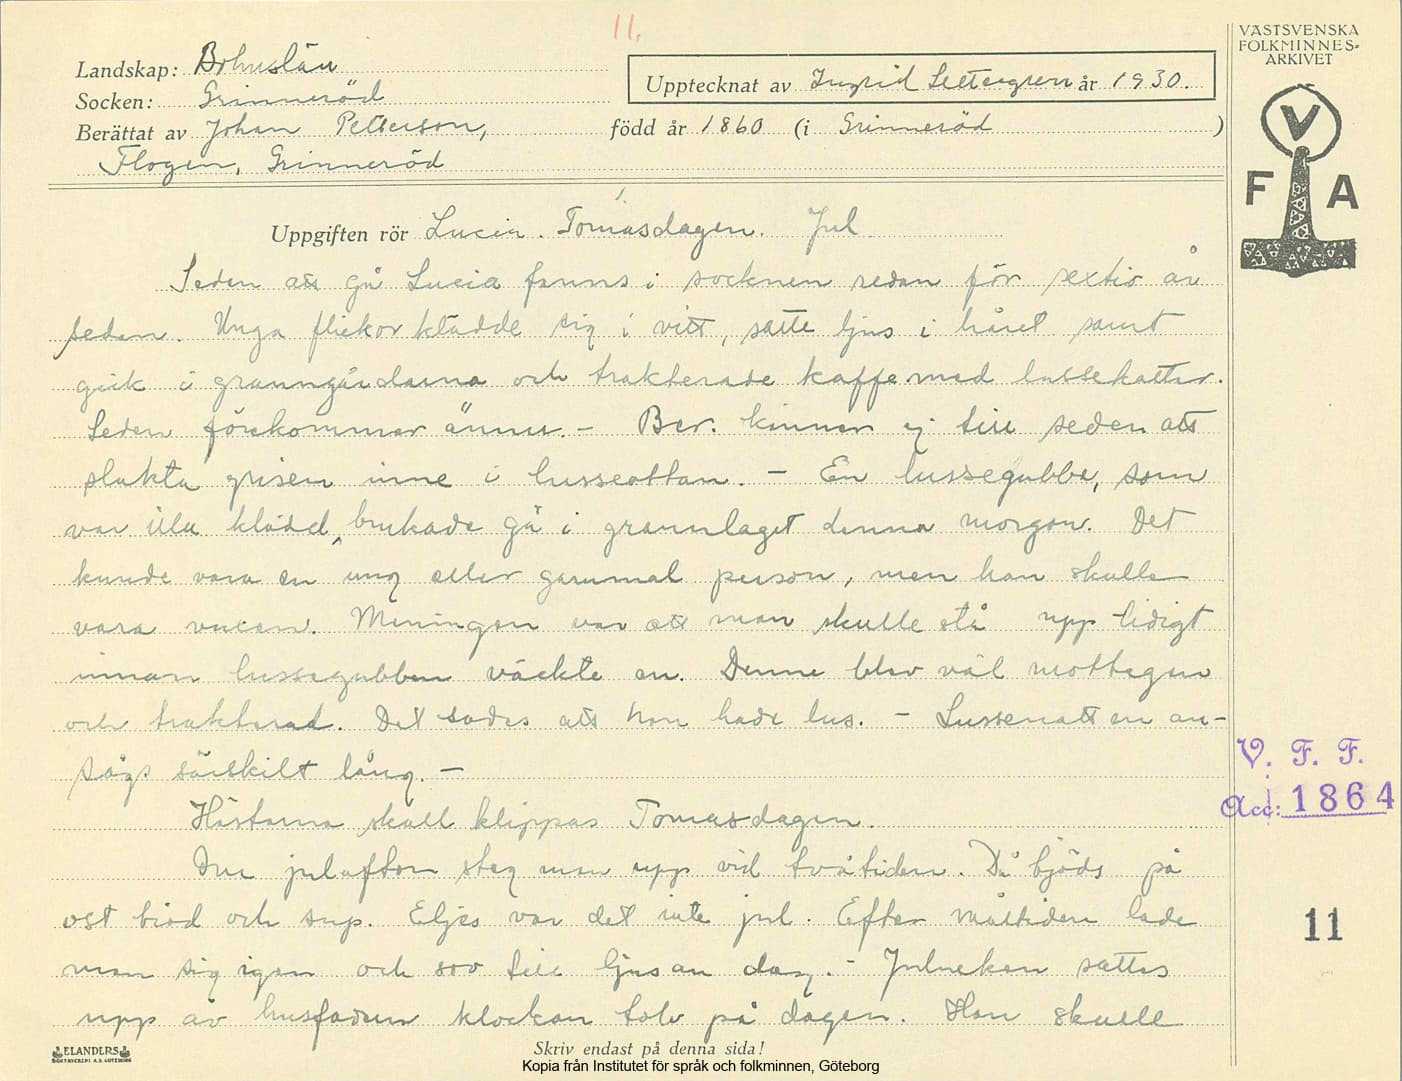 11.
Landskap: Bohuslän
Socken: Grinneröd
Upptecknat av Ingrid Settergren år 1930.
Berättat av Johan Petterson, född år 1860 (i Grinneröd )
Flogen, Grinneröd
VÄSTSVENSKA
FOLKMINNES-
ARKIVET
V
F A
Uppgiften rör Lucia. Tomasdagen. Jul
Seden att gå Lucia fanns i socknen redan för sextio år
sedan. Unga flickor klädde sig i vitt, satte ljus i håret samt
gick i granngårdarna och trakterade kaffe med lussekatter.
Seden förekommer ännu. - Ber. känner ej till seden att
slakta grisen inne i lusseottan. - En lussegubbe, som
var illa klädd, brukade gå i grannlaget denna morgon. Det
kunde vara en ung eller gammal person, men han skulle
vara vuxen. Meningen var att man skulle stå upp tidigt
innan lussegubben väckte en. Denne blev väl mottagen
och trakterad. Det sades att han hade lus. - Lussenatten an-
sågs särskilt lång. -
Hästarna skall klippas Tomasdagen.
Om julafton steg man upp vid tvåtiden. Då bjöds på
ost bröd och sup. Eljes var det inte jul. Efter måltiden lade
man sig igen och sov till ljusan dag. - Julneken sattes
upp av husfadern klockan tolv på dagen. Han skulle
V. F. F.
Acc: 1864
11
ELANDERS
BOKTRYCKERI A.B. GÖTEBORG
Skriv endast på denna sida!
Kopia från Institutet för språk och folkminnen, Göteborg